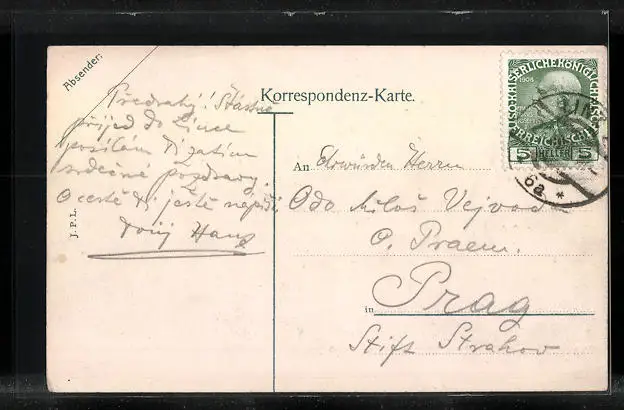 Absender:
Předrahý! Šťastně
přijed do Lince
posílám Ti zatím
srdečné pozdravy.
O cestě Ti ještě napíši
Tvůj Hans
J. P. L.
Korrespondenz-Karte.
1908
5 HELLER 5
6a *
An Ehrwürden Herrn
Odo Miloš Vejvoda
O. Praem.
in Prag
Stift Strahov